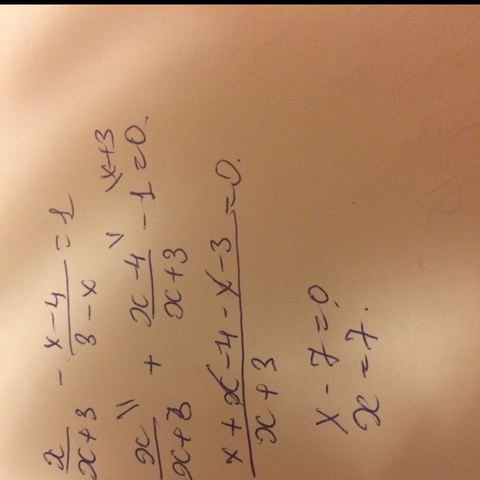 x/(x+3) - (x-4)/(3-x) = 1
x/(x+3) + (x-4)/(x+3) - 1 = 0. \x+3
(x+x-4-x-3)/(x+3) = 0.
x-7=0
x=7.